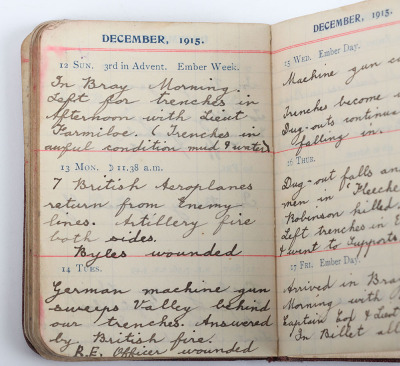 DECEMBER, 1915.
12 SUN. 3rd in Advent. Ember Week.
In Bray Morning.
Left for trenches in
Afternoon with Lieut
Farmiloe. (Trenches in
awful condition mud & water)
13 MON. ☽ 11.38 a.m.
7 British Aeroplanes
return from Enemy
lines. Artillery fire
both sides.
Byles wounded
14 TUES.
German machine gun
sweeps Valley behind
our trenches. Answered
by British fire.
R.E. Officer wounded
DECEMBER, 1915.
15 WED. Ember Day.
Machine gun
Trenches become
Dug-outs continu
falling in.
16 THUR.
Dug-out falls an
men in
Robinson killed
Left trenches in
& went to Supports
17 FRI. Ember Day.
Arrived in Bray
Morning with
Captain & Lieut
In Billet